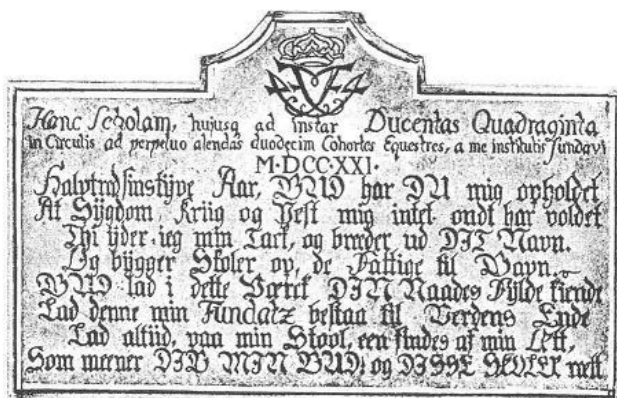 Hanc Scholam, hujusq ad instar Ducentas Quadraginta
in Circulis ad perpetuo alendas duodecim Cohortes Equestres, a me institutis fundavi
M·DCC·XXI·
Halvtrdsinstÿve Aar, GUD har DU mig opholdet
At Sÿgdom, Kriig og Pest mig intet ondt har voldet
Thi ÿder ieg min Tack, og breeder ud DIT Navn.
Og bÿgger Skoler op, de Fattige til Gavn.
GUD lad i dette Værck DIN Naades Fÿlde kiende
Lad denne min Fundatz bestaa til Verdens Ende
Lad altiid, paa min Stool, een findes af min Ætt,
Som meener DIG MIN GUD! og DISSE SKOLER rett.